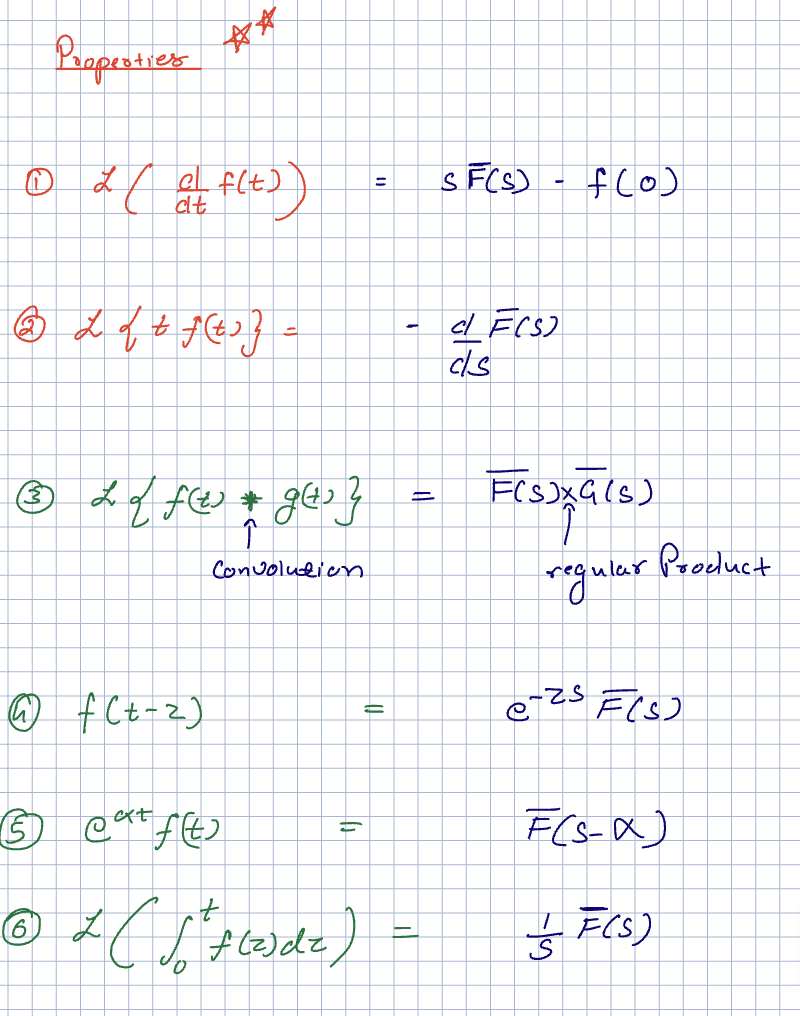 Properties
① ℒ( d/dt f(t) ) = s F̅(s) - f(0)
② ℒ{ t f(t) } = - d/ds F̅(s)
③ ℒ{ f(t) * g(t) } = F̅(s) × G̅(s)
↑ Convolution ↑ regular Product
④ f(t-z) = e^{-zs} F̅(s)
⑤ e^{αt} f(t) = F̅(s-α)
⑥ ℒ( ∫₀^t f(z)dz ) = 1/s F̅(s)